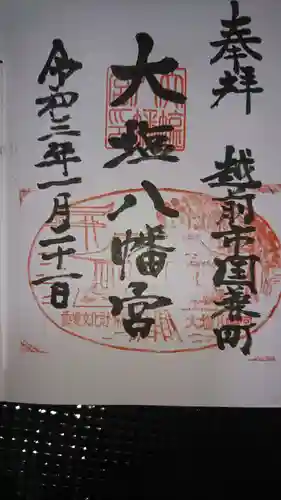 奉拝
越前市国兼町
大塩八幡宮
令和三年一月二十二日